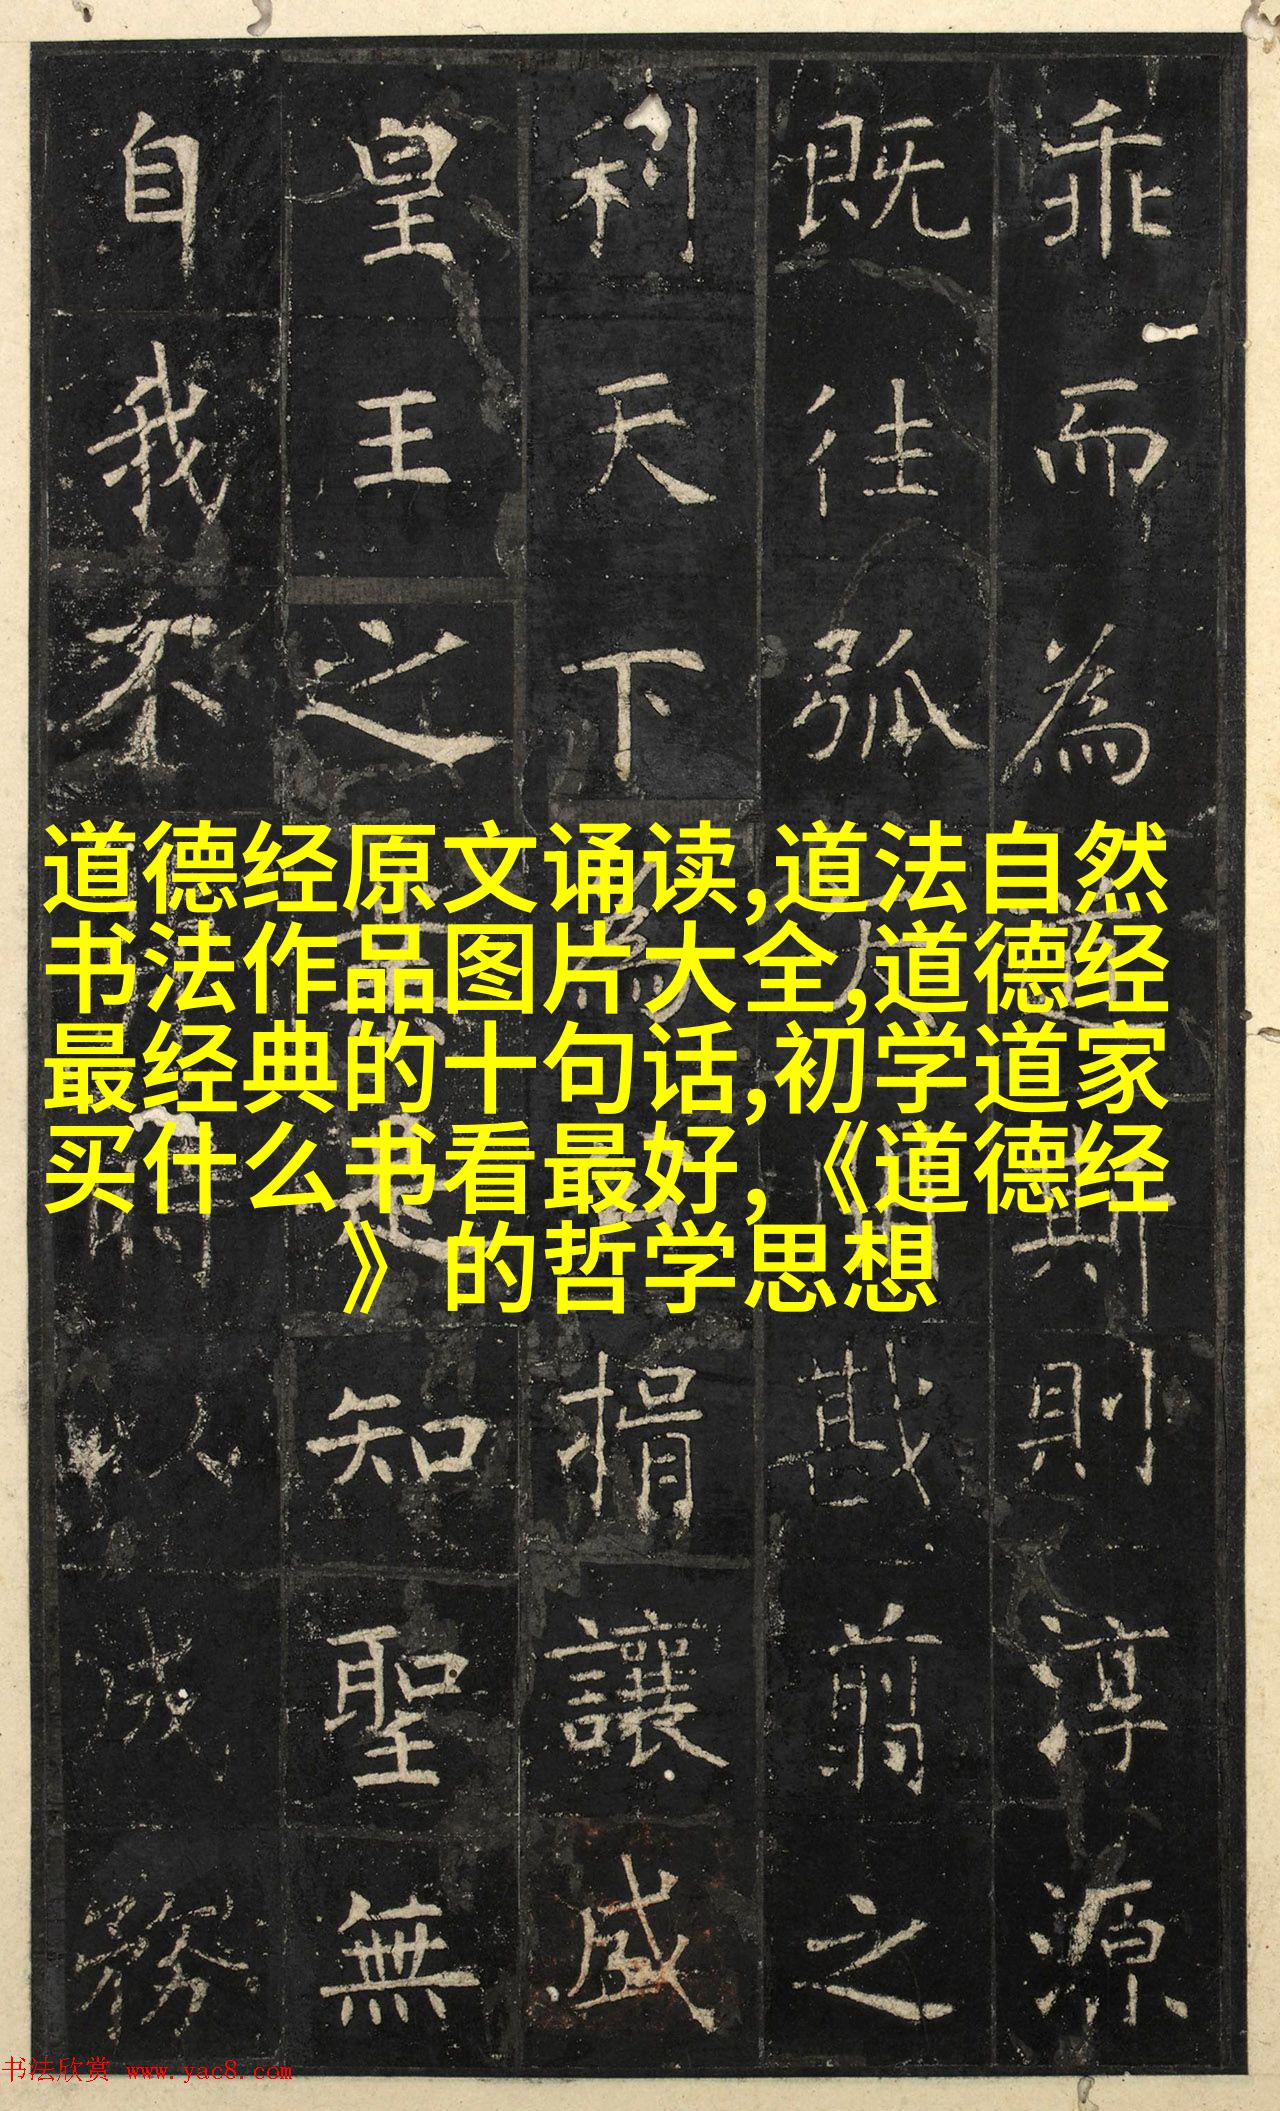 乖而為則淳源
既往弧戡翦之
利天下為揖讓盛
皇王之知聖無
自我不務
道德经原文诵读,道法自然
书法作品图片大全,道德经
最经典的十句话,初学道家
买什么书看最好,《道德经
》的哲学思想
书法欣赏 www.yac8.com